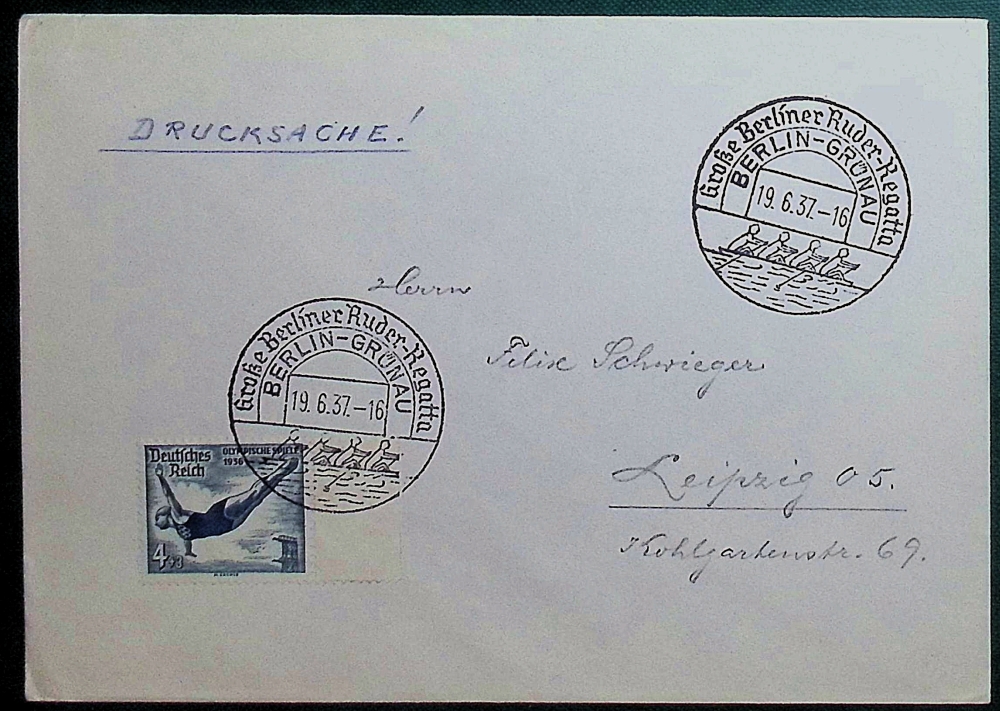 DRUCKSACHE!
Große Berliner Ruder-Regatta
BERLIN-GRÜNAU
19.6.37.-16
Herrn
Große Berliner Ruder-Regatta
BERLIN-GRÜNAU
19.6.37.-16
Felix Schwieger
Leipzig O 5.
Kohlgartenstr. 69.
Deutsches Reich
OLYMPISCHE SPIELE
1936
4+3